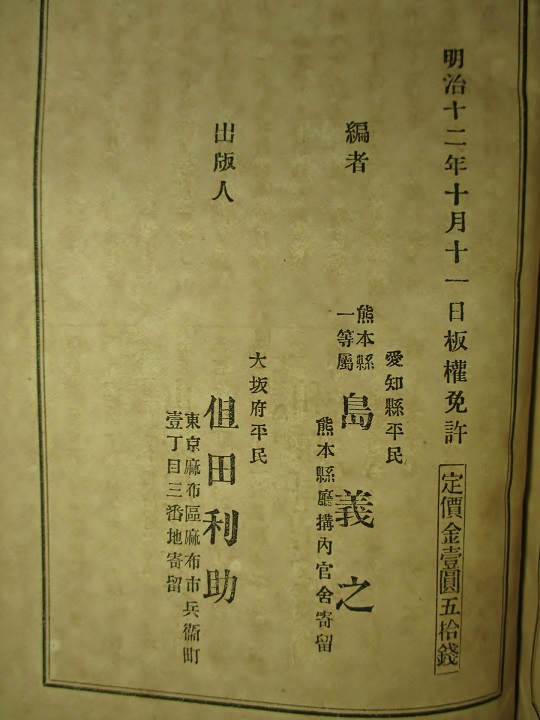 明治十二年十月十一日板權免許
定價金壹圓五拾錢
愛知縣平民
編者
熊本縣
一等屬
島義之
熊本縣廳搆內官舍寄留
大坂府平民
出版人
但田利助
東京麻布區麻布市兵衞町
壹丁目三番地寄留